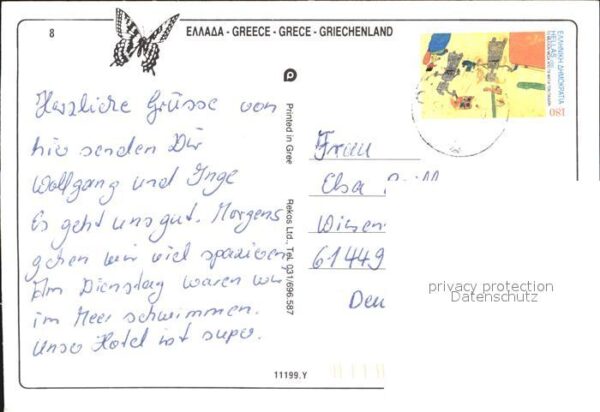 8
ΕΛΛΑΔΑ - GREECE - GRECE - GRIECHENLAND
ΕΛΛΗΝΙΚΗ ΔΗΜΟΚΡΑΤΙΑ
HELLAS
180
Herzliche Grüsse von
hier senden Dir
Wolfgang und Inge
Es geht uns gut. Morgens
gehen wir viel spazieren
Am Dienstag waren wir
im Meer schwimmen.
Unser Hotel ist super.
Printed in Gree
Rekos Ltd., Tel. 031/696.587
Frau
Elsa
Wiesen
61449
Deu
privacy protection
Datenschutz
11199.Y